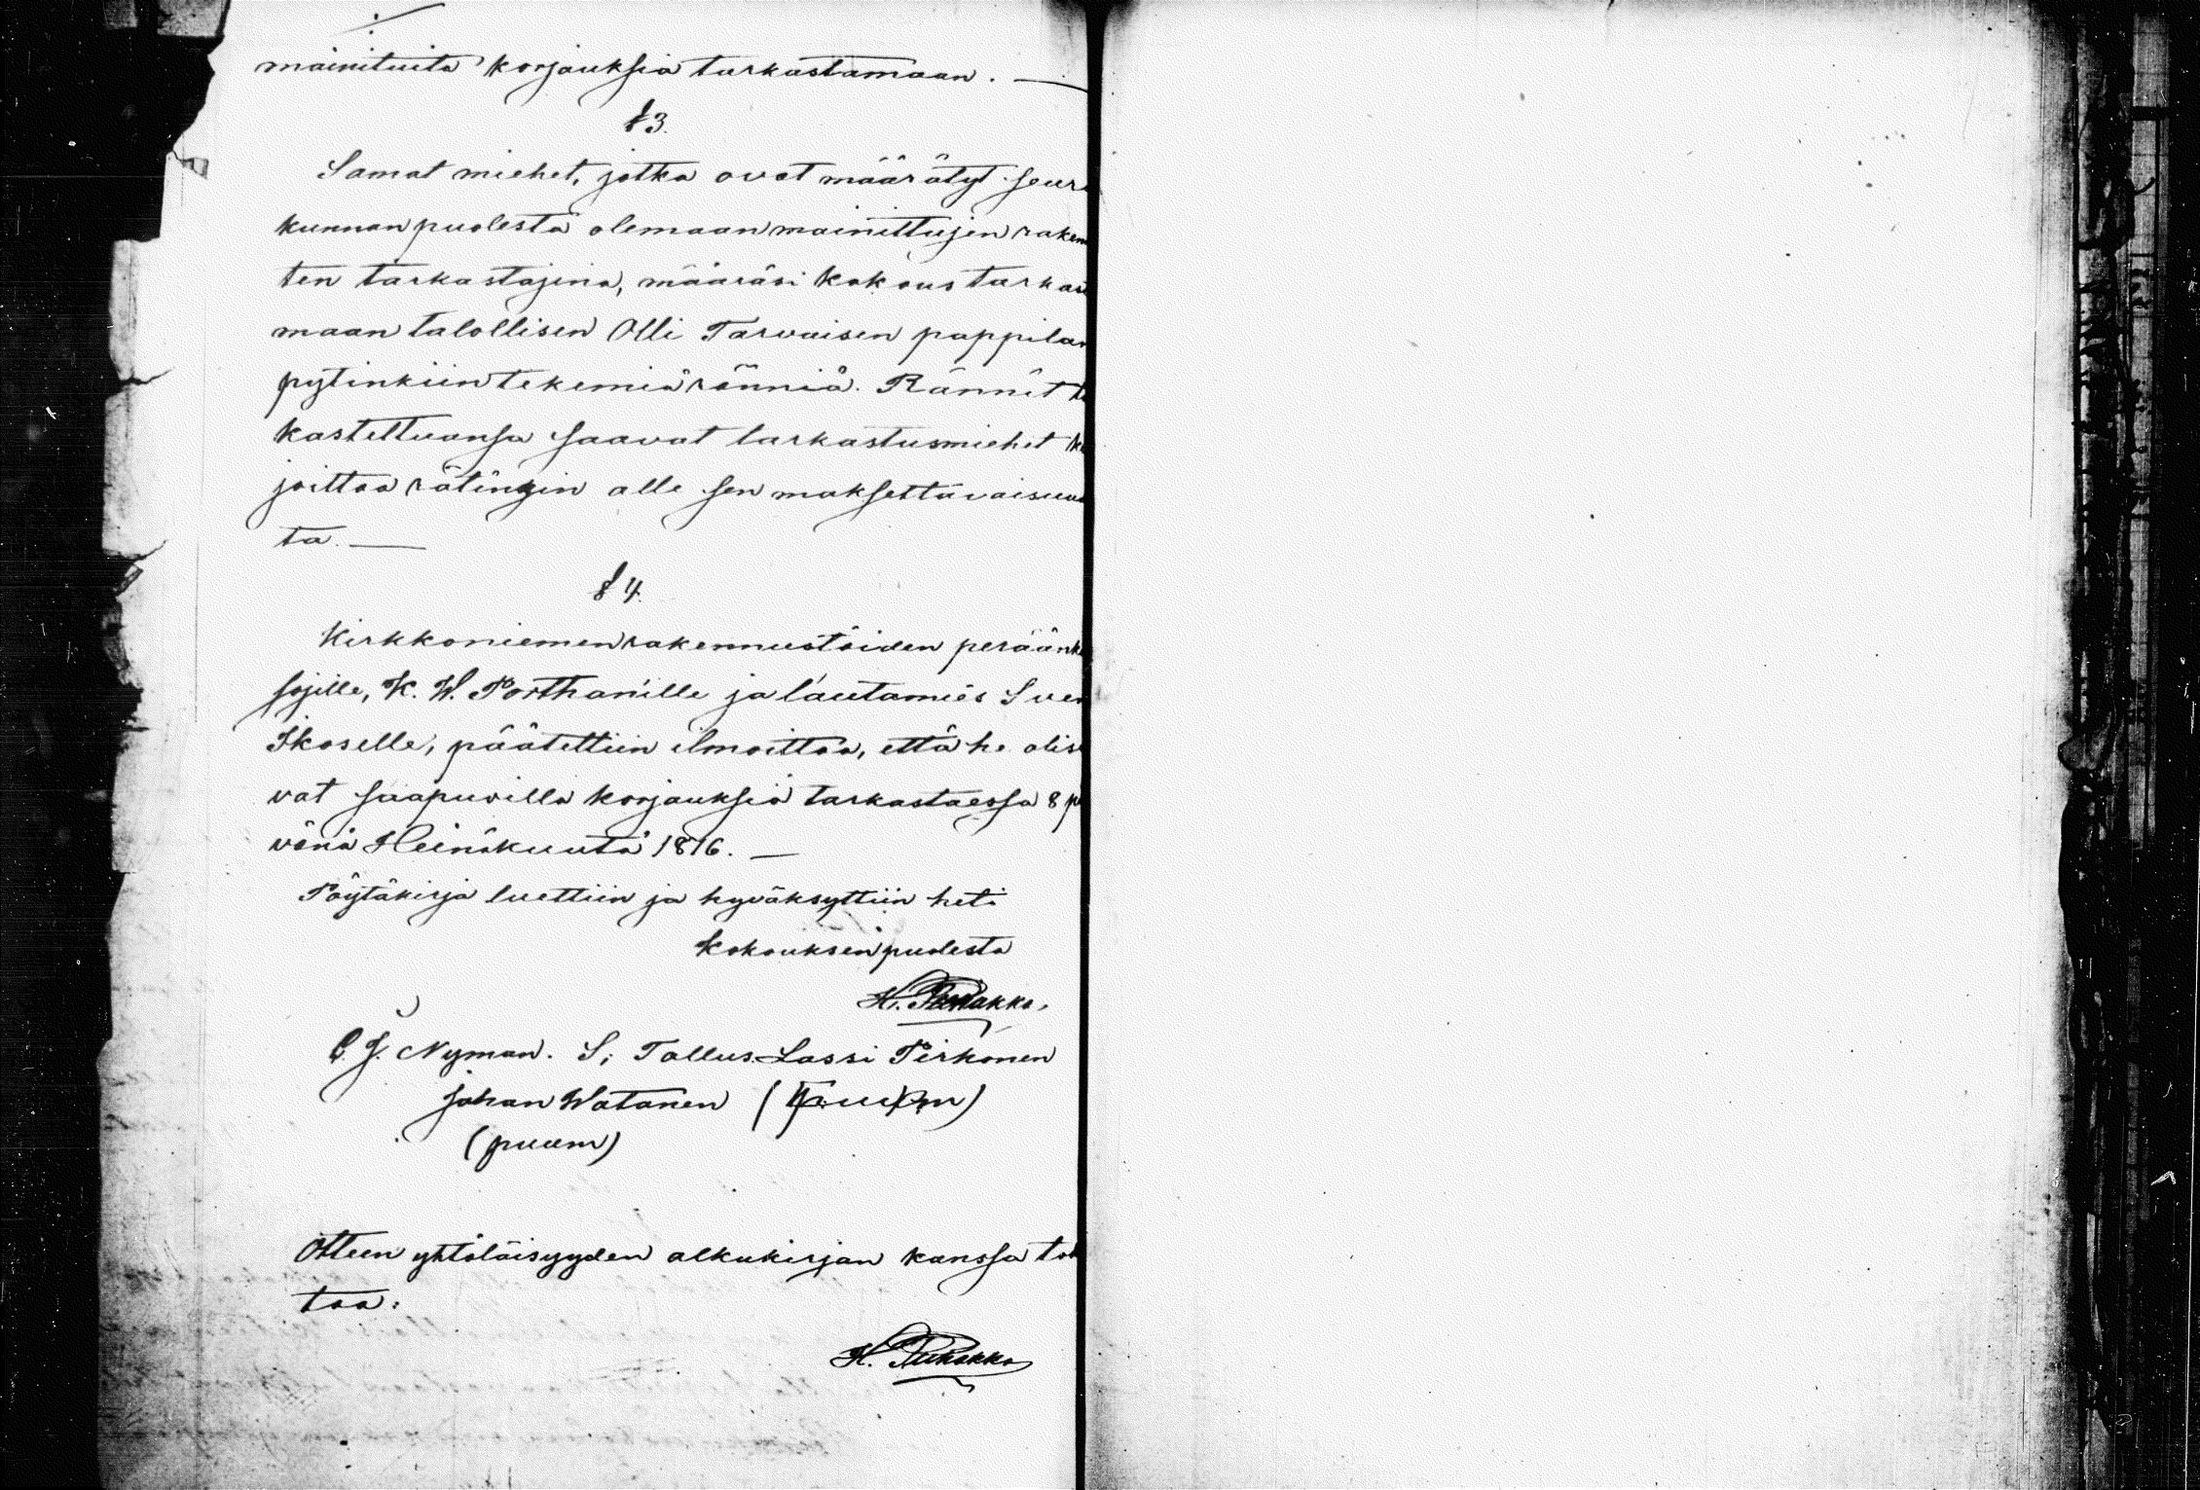 mainituita korjauksia tarkastamaan. —
§ 3.
Samat miehet, jotka ovat määrätyt seura
kunnan puolesta olemaan mainittujen raken
ten tarkastajina, määräsi kokous tarkas
maan talollisen Olli Tarvaisen pappilan
pytinkiin tekemiä rännia. Rännit
kastettuansa saavat tarkastusmiehet
joittaa rätingin alle sen maksettavaisuu
ta. —
§ 4.
Kirkkoniemen rakennustöiden peräänk
sojille, K. W. Porthan'ille ja lautamies Sven
Ikoselle, päätettiin ilmoittaa, että he olisi
vat saapuvilla korjauksia tarkastaessa 8 p
vänä Heinäkuuta 1876. —
Pöytäkirja luettiin ja hyväksyttiin heti
Kokouksen puolesta
C. J. Nyman. S. Tallus. Lassi Pirhonen
Johan Watanen
(puum)
Otteen yhtäläisyyden alkukirjan kanssa tod
taa: